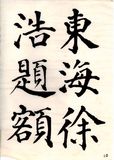 東海徐
浩題額